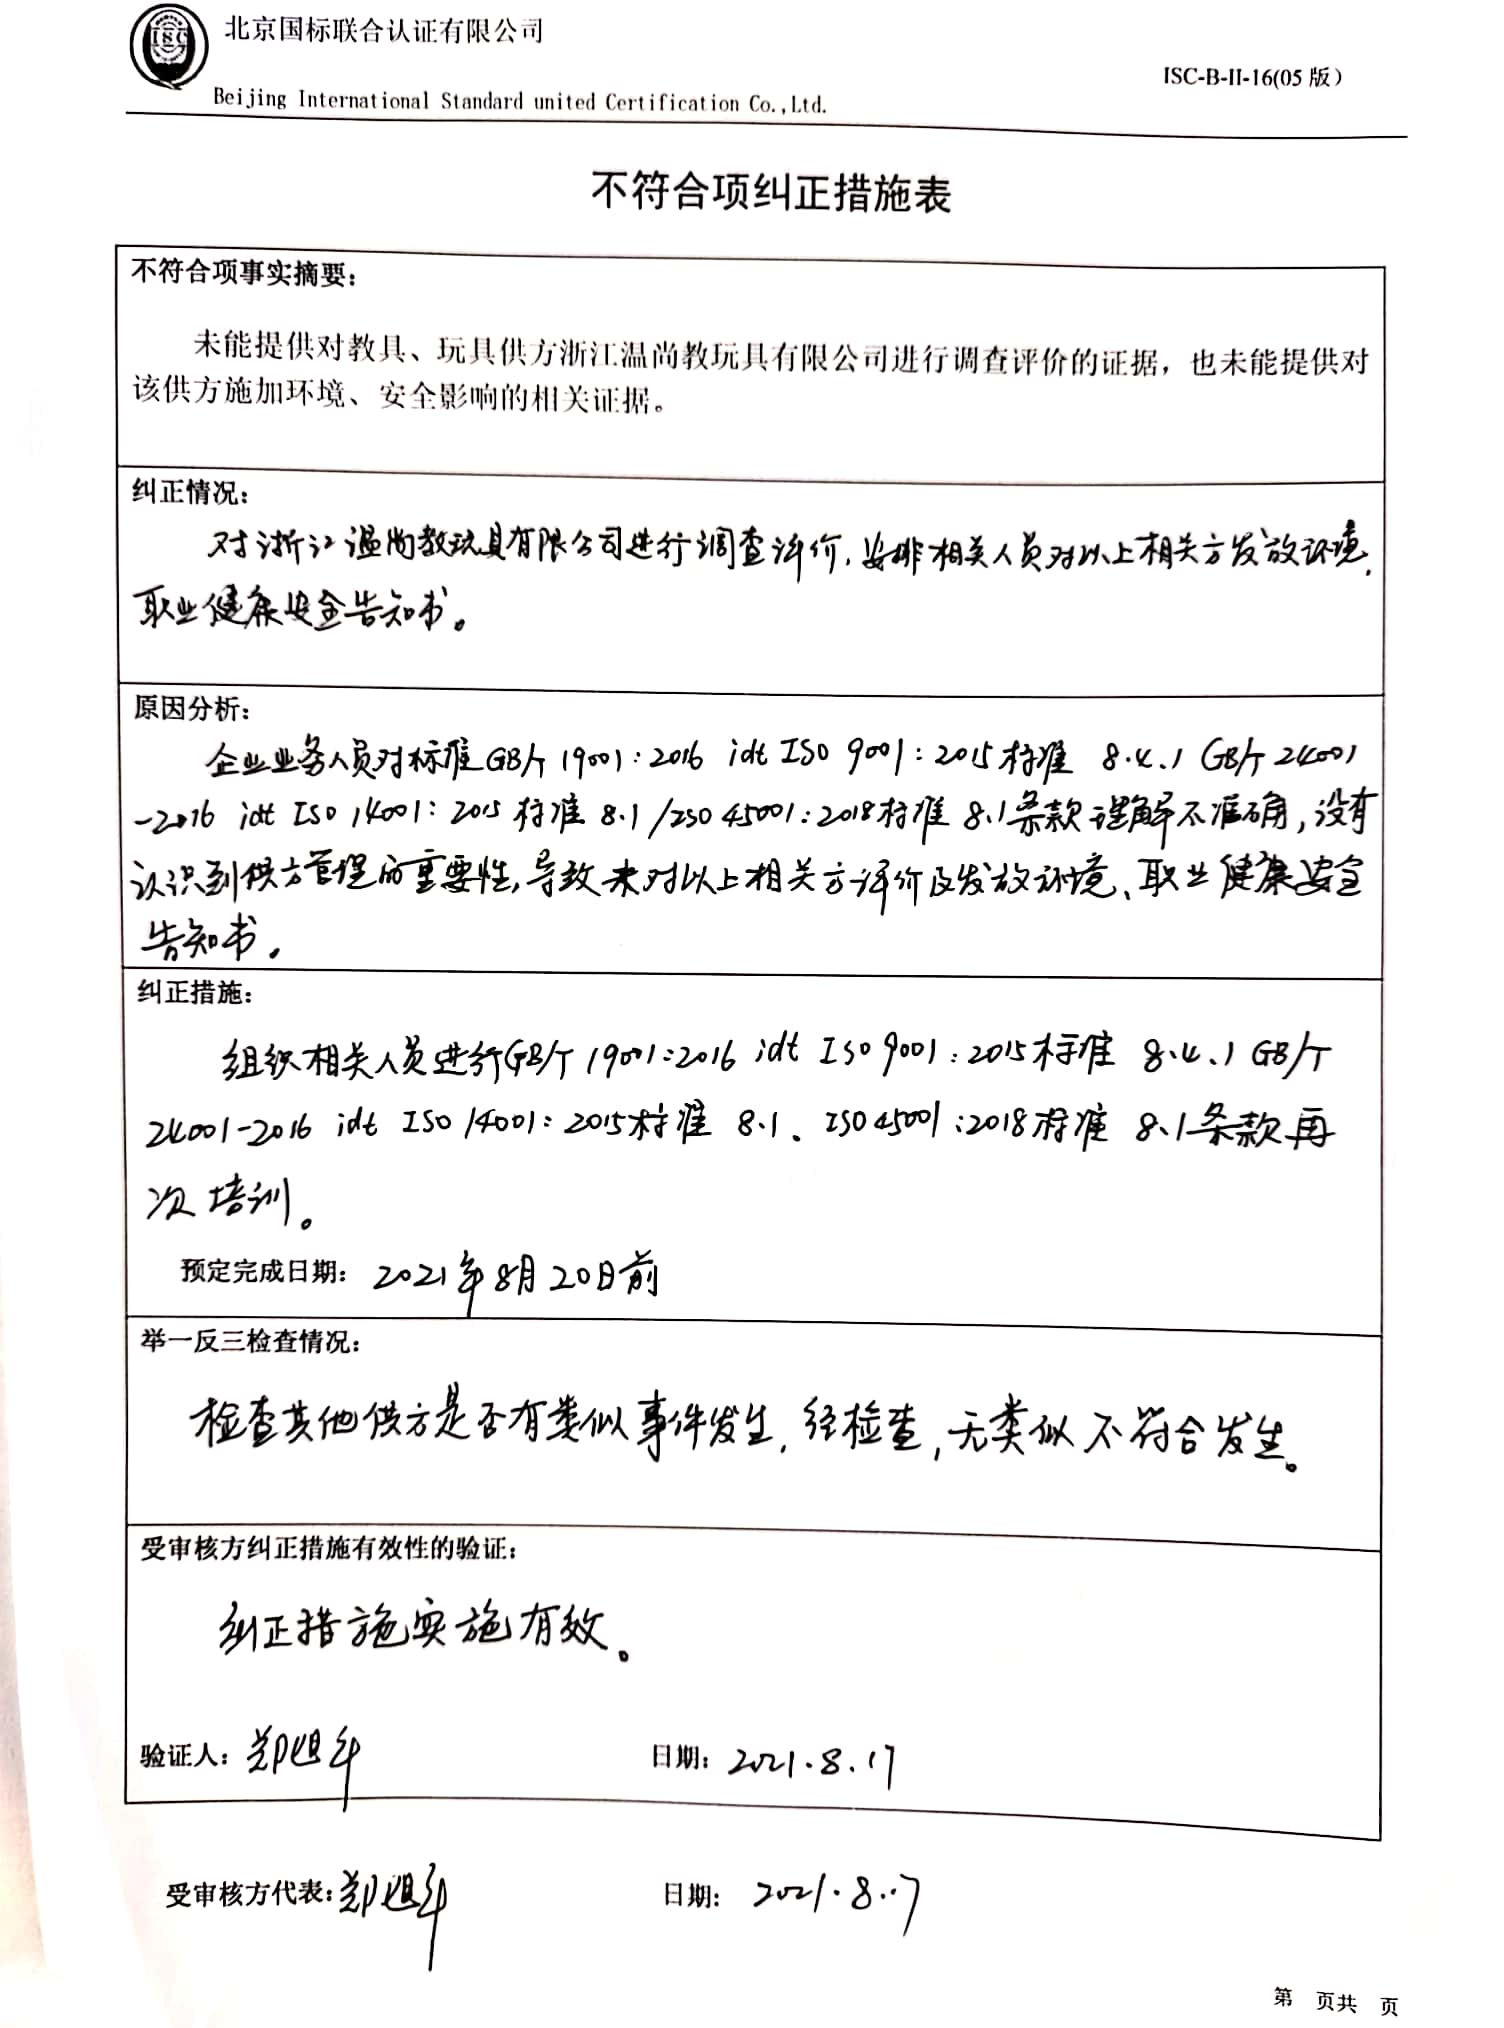 北京国标联合认证有限公司
Beijing International Standard united Certification Co.,Ltd.
ISC-B-II-16(05 版)
ISC
不符合项纠正措施表
不符合项事实摘要:
未能提供对教具、玩具供方浙江温尚教玩具有限公司进行调查评价的证据，也未能提供对
该供方施加环境、安全影响的相关证据。
纠正情况:
对浙江温尚教玩具有限公司进行调查评价,安排相关人员对以上相关方发放环境、
职业健康安全告知书。
原因分析:
企业业务人员对标准GB/T 19001:2016 idt ISO 9001:2015标准 8.4.1 GB/T 24001
-2016 idt ISO 14001:2015标准 8.1/ISO 45001:2018标准 8.1条款理解不准确,没有
认识到供方管理的重要性,导致未对以上相关方评价及发放环境、职业健康安全
告知书。
纠正措施:
组织相关人员进行GB/T 19001:2016 idt ISO 9001:2015标准 8.4.1 GB/T
24001-2016 idt ISO 14001:2015标准 8.1、ISO 45001:2018标准 8.1条款再
次培训。
预定完成日期: 2021年8月20日前
举一反三检查情况:
检查其他供方是否有类似事件发生,经检查,无类似不符合发生。
受审核方纠正措施有效性的验证:
纠正措施实施有效。
验证人: 郑 日期: 2021.8.17
受审核方代表: 郑 日期: 2021.8.17
第 页共 页